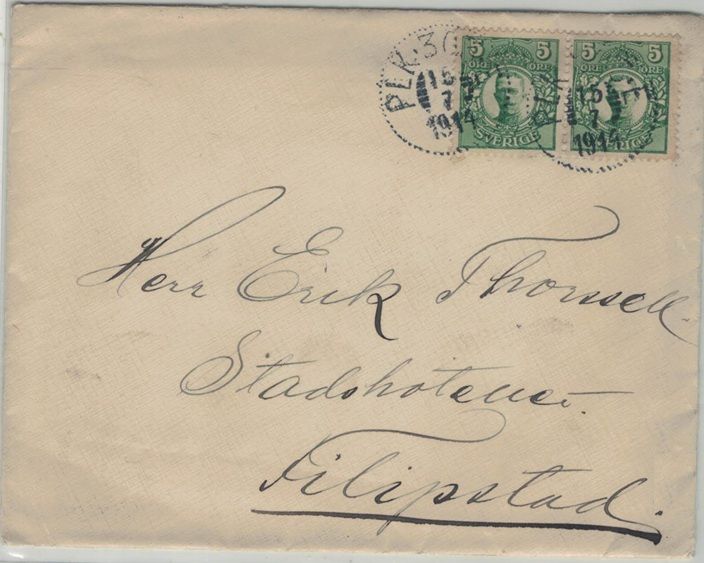 5 5 5 5
ÖRE ÖRE ÖRE ÖRE
SVERIGE SVERIGE
15
7
1914
15
7
1914
Herr Erik Thorssell.
Stadshotellet.
Filipstad.